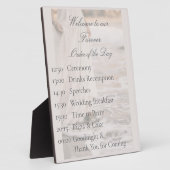 Welcome to our
Forever
Order of the Day
12:30 Ceremony
13:00 Drinks Reception
14:30 Speeches
15:30 Wedding Breakfast
19:30 Time to Party
20:15 Bap's & Cake
00:20 Goodnight &
Thank You for Coming